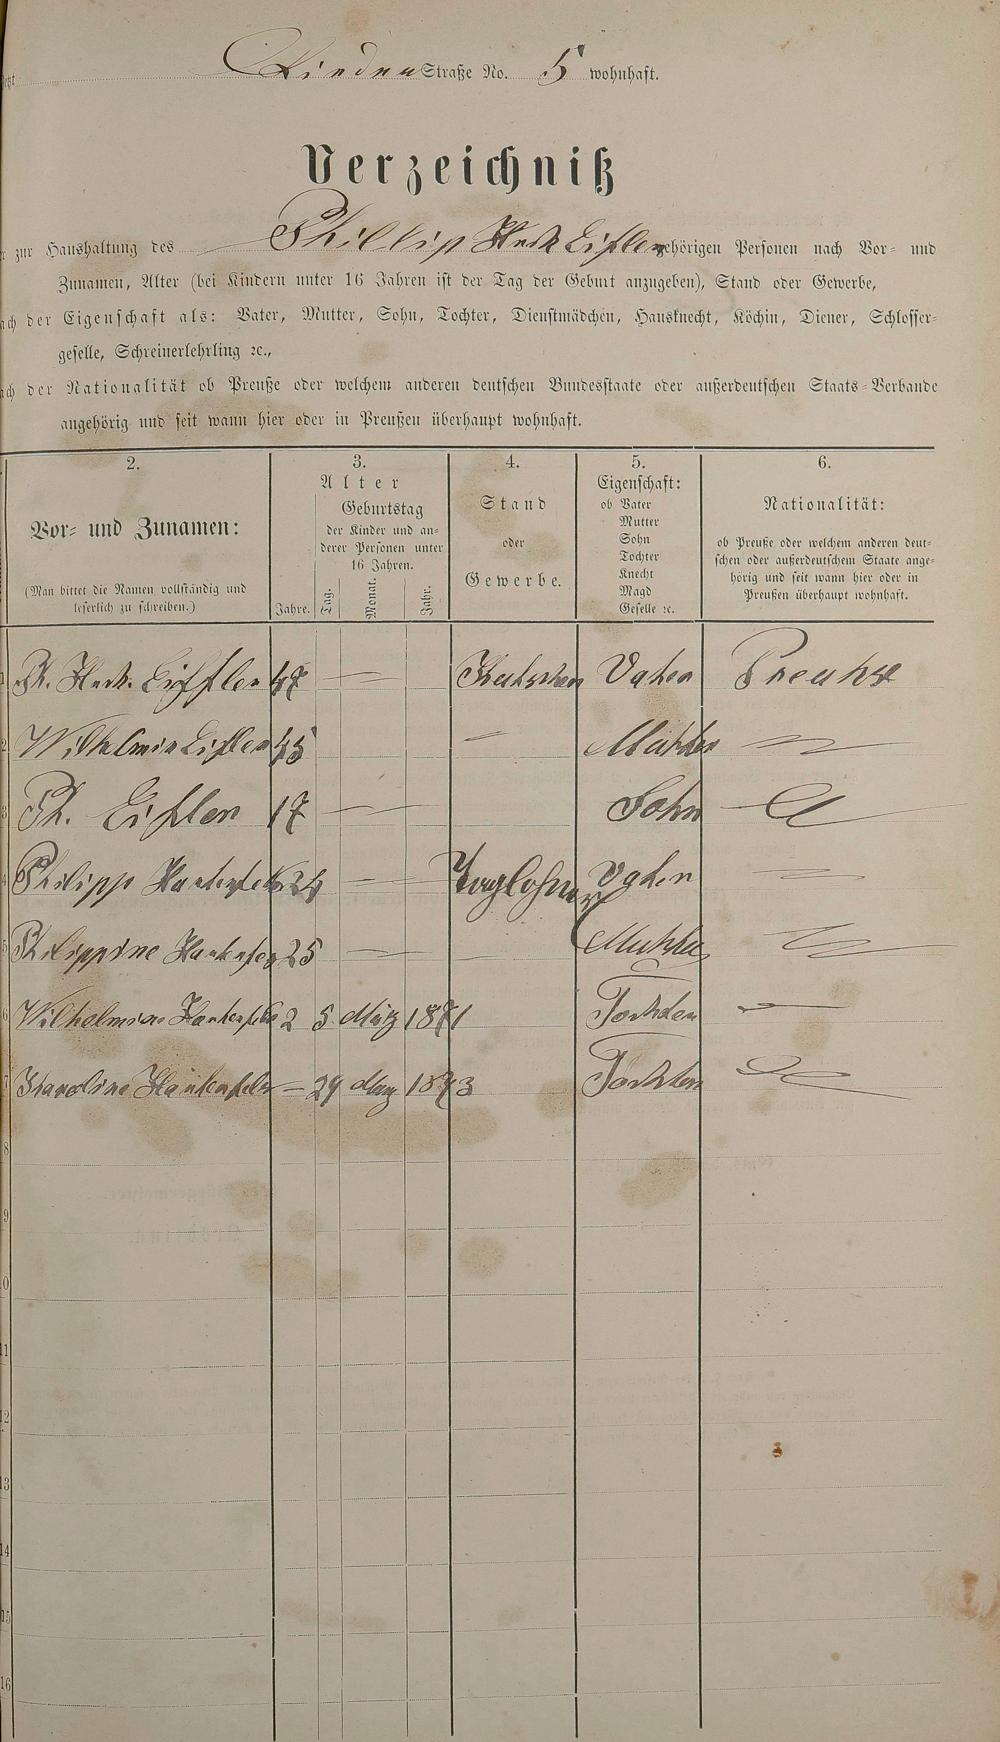 Rieder Straße No. 5 wohnhaft.
Verzeichniß
zur Haushaltung des Phillip Heck Eifler gehörigen Personen nach Vor- und
Zunamen, Alter (bei Kindern unter 16 Jahren ist der Tag der Geburt anzugeben), Stand oder Gewerbe,
der Eigenschaft als: Vater, Mutter, Sohn, Tochter, Dienstmädchen, Hausknecht, Köchin, Diener, Schlosser-
geselle, Schreinerlehrling ꝛc.,
der Nationalität ob Preuße oder welchem anderen deutschen Bundesstaate oder außerdeutschen Staats-Verbande
angehörig und seit wann hier oder in Preußen überhaupt wohnhaft.
2. 3. 4. 5. 6.
Vor- und Zunamen:
(Man bittet die Namen vollständig und
leserlich zu schreiben.)
Alter
Jahre.
Geburtstag
der Kinder und an-
derer Personen unter
16 Jahren.
Tag. Monat. Jahr.
Stand
oder
Gewerbe.
Eigenschaft:
ob Vater
Mutter
Sohn
Tochter
Knecht
Magd
Geselle ꝛc.
Nationalität:
ob Preuße oder welchem anderen deut-
schen oder außerdeutschem Staate ange-
hörig und seit wann hier oder in
Preußen überhaupt wohnhaft.
1 Ph. Heck. Eiffler 47 — Kutscher Vater Preuhse
2 Wilhelmin Eifler 45 — Mutter
3 Ph. Eifler 17 — Sohn
4 Philipp 24 — Taglohner Vater
5 Philippine 25 — Mutter
6 Wilhelmine 2 5 März 1871 Tochter
7 Karoline = 29 May 1873 Tochter
8
9
10
11
12
13
14
15
16